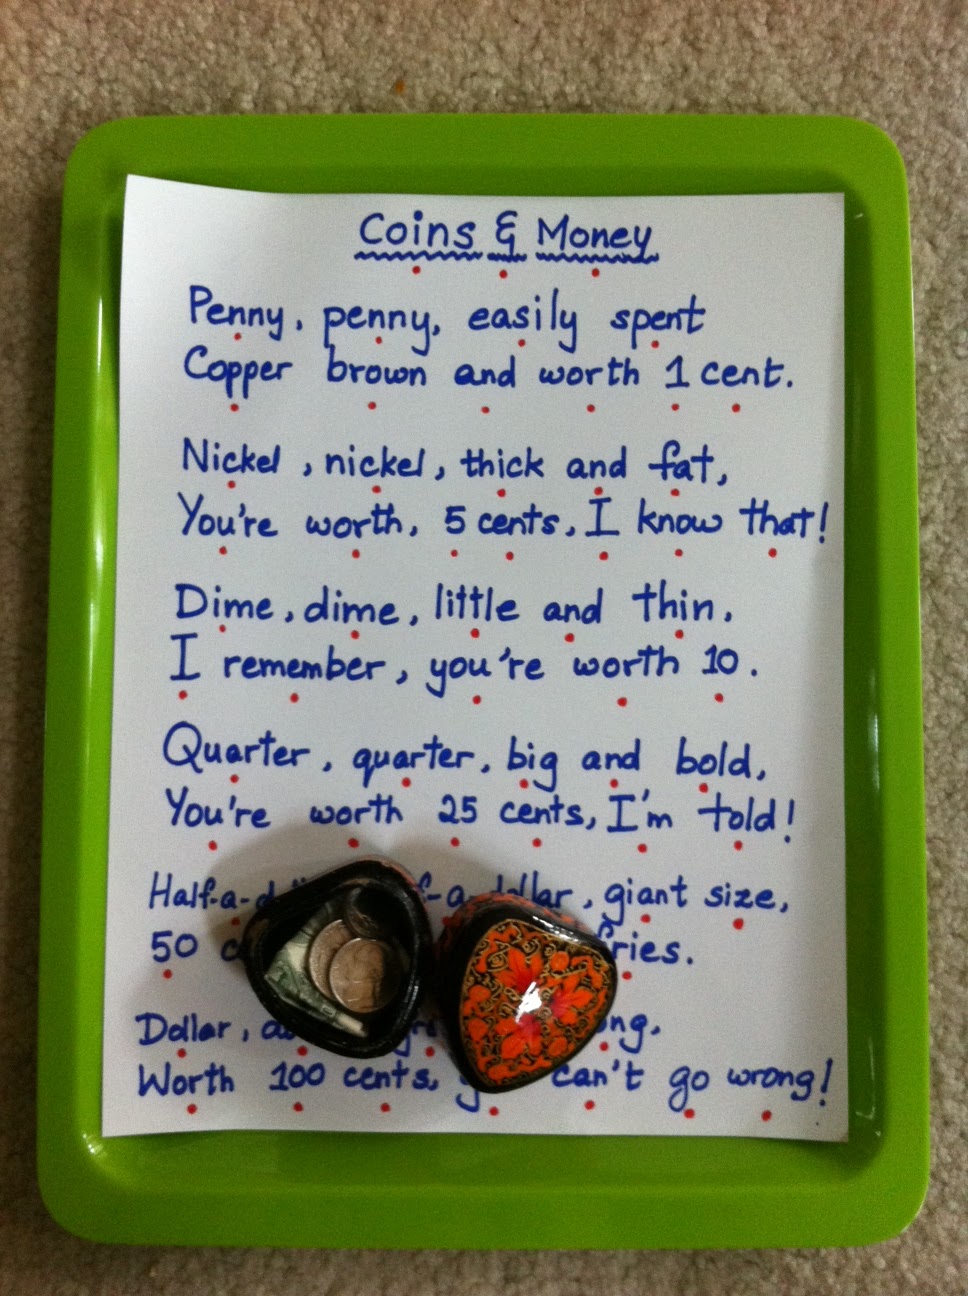 Coins & Money
Penny, penny, easily spent
Copper brown and worth 1 cent.
Nickel, nickel, thick and fat,
You're worth, 5 cents, I know that!
Dime, dime, little and thin,
I remember, you're worth 10.
Quarter, quarter, big and bold,
You're worth 25 cents, I'm told!
Half-a- -a-dollar, giant size,
50 fries.
Dollar,
Worth 100 cents, can't go wrong!